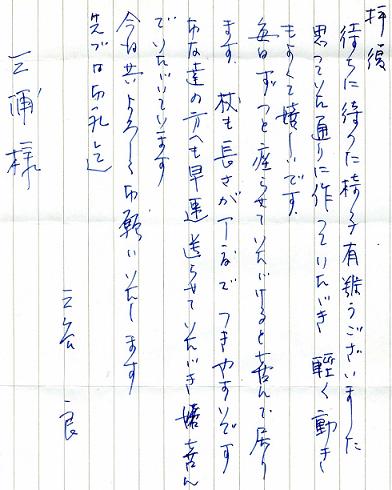 拝復
待ちに待った椅子有難うございました
思っていた通りに作っていただき 軽く動き
もよくて嬉しいです。
毎日ずっと座らせていただけると喜んで居り
ます。杖も長さが丁度で つきやすいです
お友達の方へも早速送らせていただき 嬉しん
でいただいています
今后共よろしくお願いいたします
先ずは御礼まで
三浦様